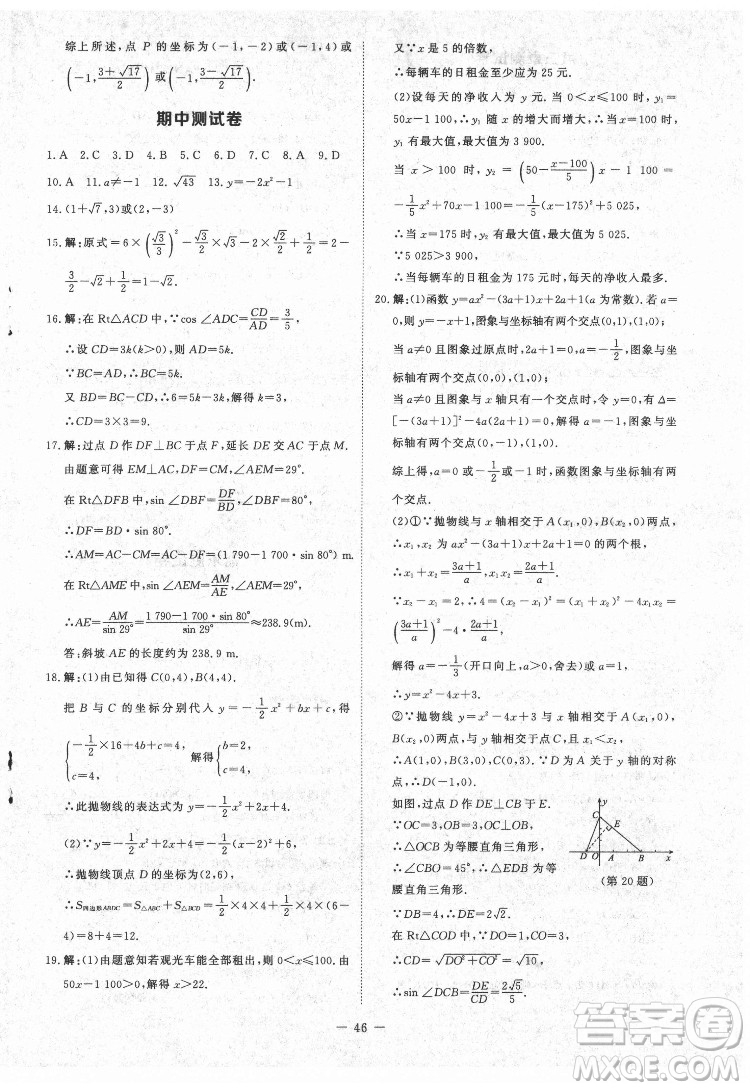 综上所述,点 P 的坐标为(-1,-2)或(-1,4)或
(-1,(3+√17)/2)或(-1,(3-√17)/2).
期中测试卷
1.A 2.C 3.D 4.B 5.C 6.D 7.C 8.A 9.D
10.A 11.a≠-1 12.√43 13.y=-2x²-1
14.(1+√7,3)或(2,-3)
15.解:原式=6×(√3/3)²-√2×√3/2-2×√2/2+1/2=2-
3/2-√2+1/2=1-√2.
16.解:在 Rt△ACD 中,∵cos∠ADC=CD/AD=3/5,
∴设 CD=3k(k>0),则 AD=5k.
∵BC=AD,∴BC=5k.
又 BD=BC-CD,∴6=5k-3k,解得 k=3.
∴CD=3×3=9.
17.解:过点 D 作 DF⊥BC 于点 F,延长 DE 交 AC 于点 M.
由题意可得 EM⊥AC,DF=MC,∠AEM=29°.
在 Rt△DFB 中,sin∠DBF=DF/BD,
∴DF=BD·sin 80°.
∴AM=AC-CM=AC-DF=(1 790-1 700·sin 80°) m.
在 Rt△AME 中,sin∠AEM=AM/AE,
∴AE=AM/sin 29°=(1 790-1 700·sin 80°)/sin 29°≈238.9(m).
答:斜坡 AE 的长度约为 238.9 m.
18.解:(1)由已知得 C(0,4),B(4,4),
把 B 与 C 的坐标分别代入 y=-1/2x²+bx+c,得
{-1/2×16+4b+c=4, c=4, 解得{b=2, c=4.
∴此抛物线的表达式为 y=-1/2x²+2x+4.
(2)∵y=-1/2x²+2x+4=-1/2(x-2)²+6,
∴抛物线顶点 D 的坐标为(2,6).
∴S四边形ABDC=S△ABC+S△BCD=1/2×4×4+1/2×4×2=
8+4=12.
19.解:(1)由题意知若观光车能全部租出,则 0<x≤100,由
50x-1 100>0,解得 x>22.
又∵x 是 5 的倍数,
∴每辆车的日租金至少应为 25 元.
(2)设每天的净收入为 y 元,当 0<x≤100 时,y₁=
50x-1 100,∵y₁ 随 x 的增大而增大,∴当 x=100 时,
y₁有最大值,最大值为 3 900.
当 x>100 时,y₂=(50-(x-100)/5)x-1 100=
-1/5x²+70x-1 100=-1/5(x-175)²+5 025,
∴当 x=175 时,y₂有最大值,最大值为 5 025.
∵5 025>3 900,
∴当每辆车的日租金为 175 元时,每天的净收入最多.
20.解:(1)函数 y=ax²-(3a+1)x+2a+1(a 为常数).若 a=
0,则 y=-x+1,图象与坐标轴有两个交点(0,1),(1,0);
当 a≠0 且图象过原点时,2a+1=0,a=-1/2,图象与坐
标轴有两个交点(0,0),(1,0);
当 a≠0 且图象与 x 轴只有一个交点时,令 y=0,有 Δ=
[-(3a+1)]²-4a(2a+1)=0,解得 a=-1.
综上得,a=0 或 -1/2 或 -1 时,函数图象与坐标轴有两
个交点.
(2)①∵抛物线与 x 轴相交于 A(x₁,0),B(x₂,0)两点,
∴x₁,x₂ 为 ax²-(3a+1)x+2a+1=0 的两个根,
∴x₁+x₂=(3a+1)/a,x₁x₂=(2a+1)/a.
∵x₂-x₁=2,∴4=(x₂-x₁)²=(x₁+x₂)²-4x₁x₂=
((3a+1)/a)²-4·(2a+1)/a,
解得 a=-1/3(开口向上,a>0,舍去)或 a=1,
∴y=x²-4x+3.
②∵抛物线 y=x²-4x+3 与 x 轴相交于 A(x₁,0),
B(x₂,0)两点,与 y 轴相交于点 C,且 x₁<x₂,
∴A(1,0),B(3,0),C(0,3).∵D 为 A 关于 y 轴的对称
点,∴D(-1,0).
如图,过点 D 作 DE⊥CB 于 E.
∵OC=3,OB=3,OC⊥OB,
∴△OCB 为等腰直角三角形,
∴∠CBO=45°,∴△EDB 为等
腰直角三角形.
∵DB=4,∴DE=2√2.
在 Rt△COD 中,∵DO=1,CO=3,
∴CD=√(DO²+CO²)=√10,
∴sin∠DCB=DE/CD=2√5/5.
y
C
E
D O A B x
(第 20 题)
— 46 —
答案圈
MXQE.COM